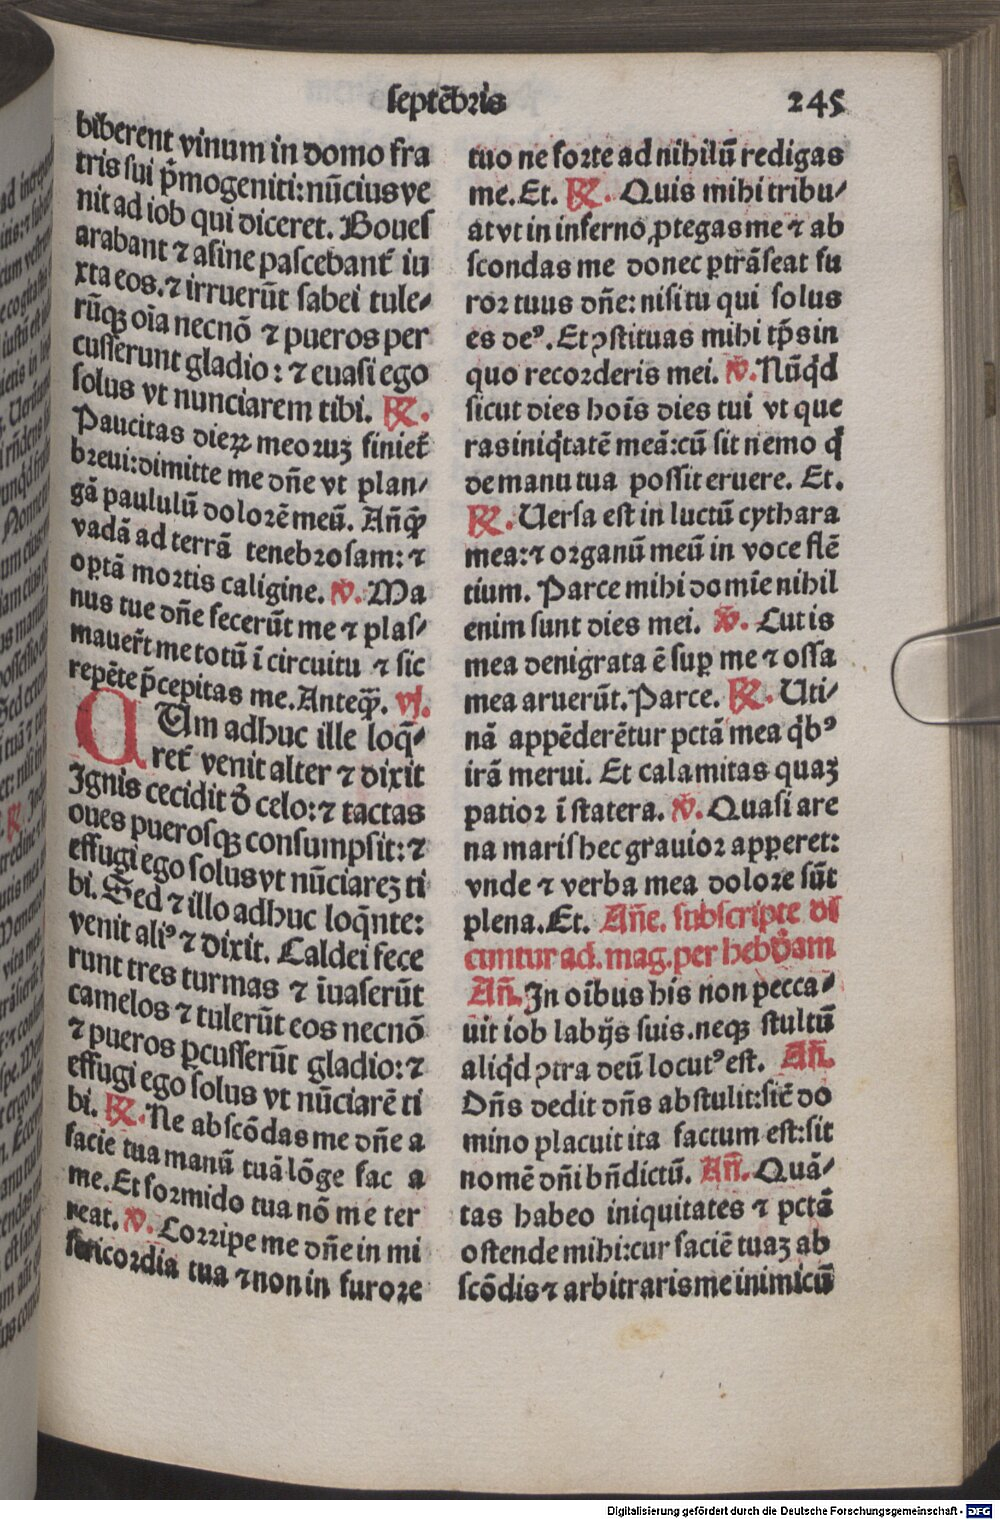 septēbris
245
biberent vinum in domo fra
tris sui p̄mogeniti: nūcius ve
nit ad iob qui diceret. Boues
arabant ⁊ asine pascebant̄ iu
xta eos. ⁊ irruerūt sabei tule⸗
rūqꝫ oīa necnō ⁊ pueros per
cusserunt gladio: ⁊ euasi ego
solus vt nunciarem tibi. ℟.
Paucitas dieꝝ meoruꝫ finiet̄
breui: dimitte me dn̄e vt plan⸗
gā paululū dolorē meū. Añq̄ꝫ
vadā ad terrā tenebrosam: ⁊
op̄tā mortis caligine. ℣. Ma
nus tue dn̄e fecerūt me ⁊ plas⸗
mauer̄t me totū ī circuitu ⁊ sic
repēte p̄cepitas me. Anteq̄ꝫ. vj.
CUm adhuc ille loq̄⸗
ret̄ venit alter ⁊ dixit
Ignis cecidit d̄ celo: ⁊ tactas
oues puerosqꝫ consumpsit: ⁊
effugi ego solus vt nūciareꝫ ti
bi. Sed ⁊ illo adhuc loq̄nte:
venit ali⁹ ⁊ dixit. Caldei fece
runt tres turmas ⁊ īuaserūt
camelos ⁊ tulerūt eos necnō
⁊ pueros ꝑcusserūt gladio: ⁊
effugi ego solus vt nūciarē ti
bi. ℟. Ne abscōdas me dn̄e a
facie tua manū tuā lōge fac a
me. Et formido tua nō me ter
reat. ℣. Corripe me dn̄e in mi
sericordia tua ⁊ non in furore
tuo ne forte ad nihilū redigas
me. Et. ℟. Quis mihi tribu⸗
at vt in inferno ꝓtegas me ⁊ ab
scondas me donec ꝑtrāseat fu
ror tuus dn̄e: nisi tu qui solus
es de⁹. Et ꝯstituas mihi tp̄s in
quo recorderis mei. ℣. Nūq̇d
sicut dies hoīs dies tui vt que
ras iniq̇tatē meā: cū sit nemo q̇
de manu tua possit eruere. Et.
℟. Uersa est in luctū cythara
mea: ⁊ organū meū in voce flē
tium. Parce mihi domīe nihil
enim sunt dies mei. ℣. Cutis
mea denigrata ē suꝑ me ⁊ ossa
mea aruerūt. Parce. ℟. Uti⸗
nā appēderētur pctā mea q̇b⁹
irā merui. Et calamitas quaꝫ
patior ī statera. ℣. Quasi are
na maris hec grauior apꝑeret:
vnde ⁊ verba mea dolore sūt
plena. Et. Añe. subscripte di
cuntur ad. mag. per hebdōam
Añ. In oībus his non pecca⸗
uit iob labijs suis. neqꝫ stultū
aliq̇d ꝯtra deū locut⁹ est. Añ.
Dn̄s dedit dn̄s abstulit: sic̄ do
mino placuit ita factum est: sit
nomē dn̄i bn̄dictū. Añ. Quā⸗
tas habeo iniquitates ⁊ pctā
ostende mihi: cur faciē tuaꝫ ab
scōdis ⁊ arbitraris me inimicū
Digitalisierung gefördert durch die Deutsche Forschungsgemeinschaft - DFG